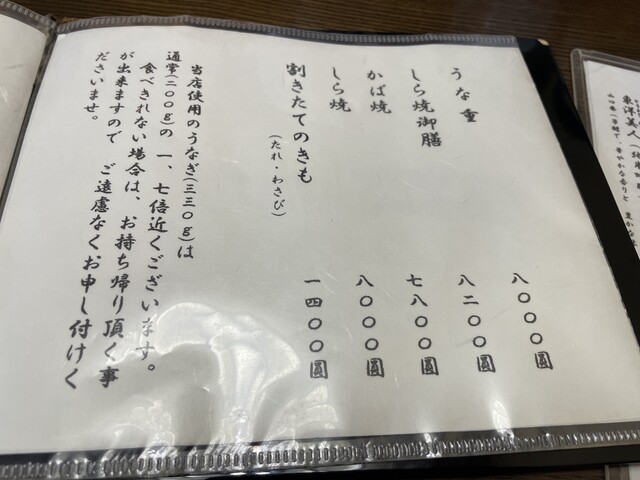 東洋美人
うな重 八〇〇〇圓
しら焼御膳 八二〇〇圓
かば焼 七八〇〇圓
しら焼 八〇〇〇圓
割きたてのきも 一四〇〇圓
(たれ・わさび)
当店使用のうなぎ(三三〇g)は
通常(二〇〇g)の 一、七倍近くございます。
食べきれない場合は、お持ち帰り頂く事
が出来ますので ご遠慮なくお申し付けく
ださいませ。